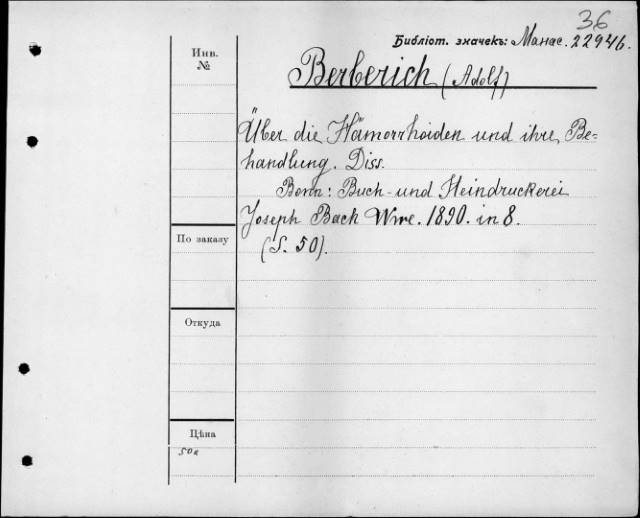 36
Библіот. значекъ: Манас. 22946.
Инв.
№
Berberich (Adolf)
Über die Hämorrhoiden und ihre Be-
handlung. Diss.
Bonn: Buch- und Steindruckerei
Joseph Bach Wwe. 1890. in 8.
(S. 50).
По заказу
Откуда
Цѣна
50к